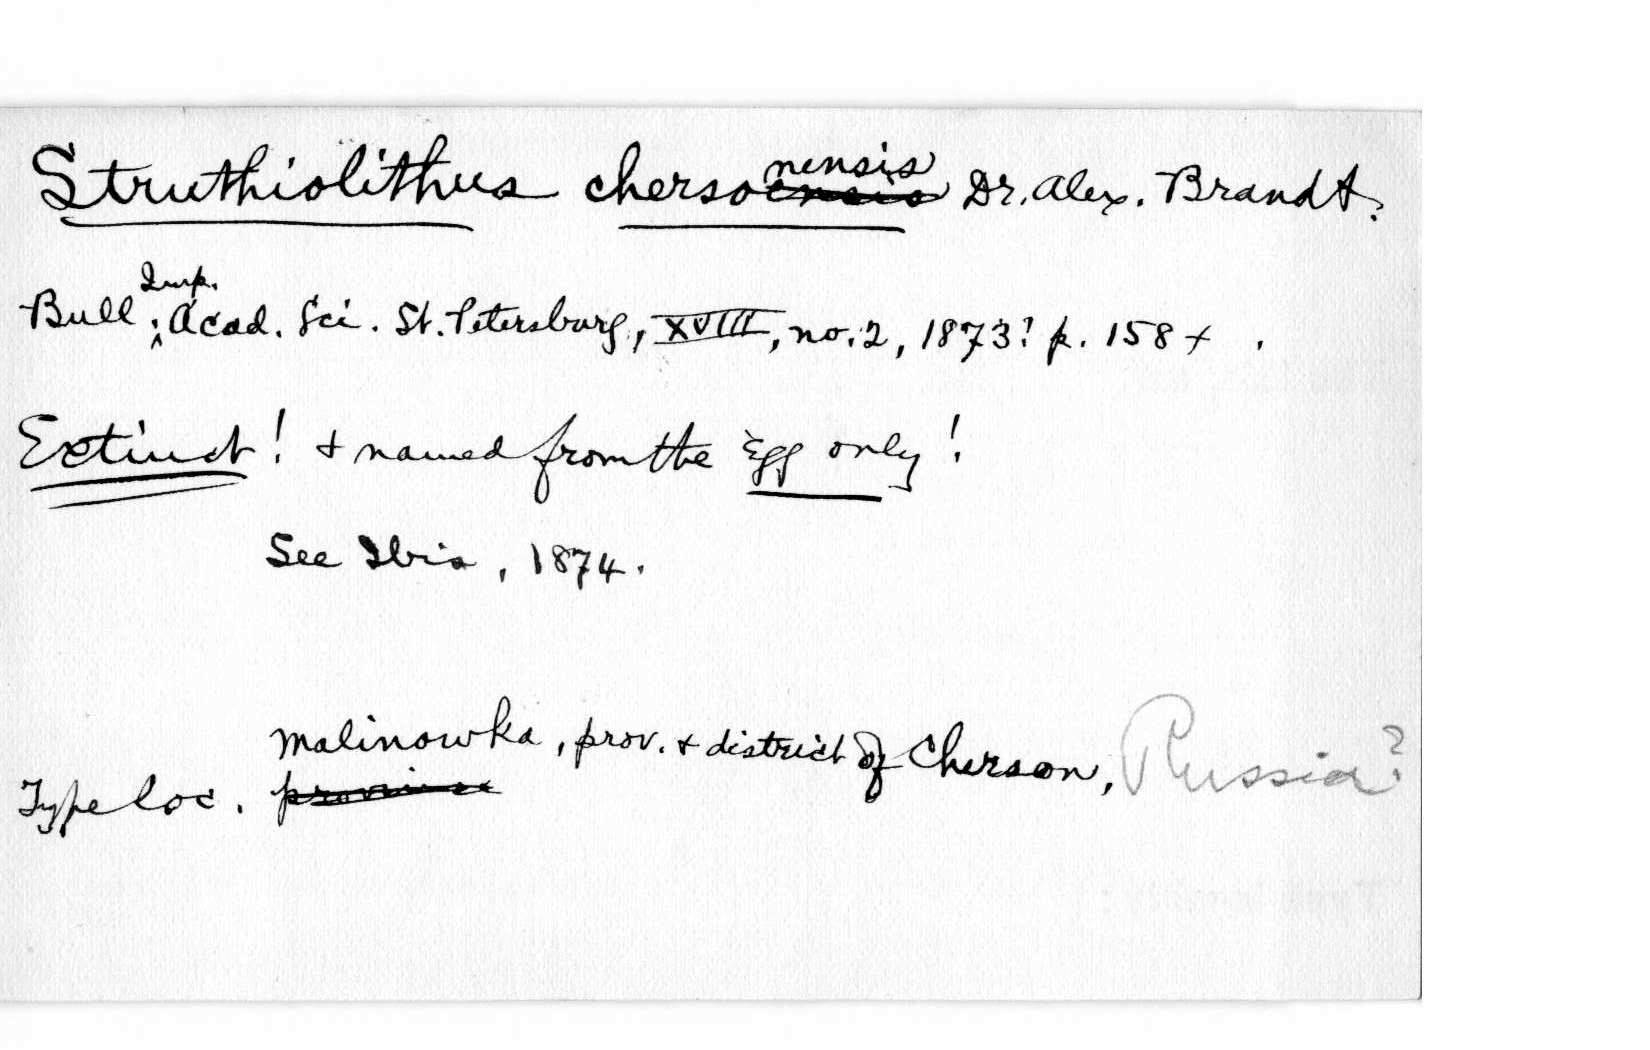 Struthiolithus chersonensis Dr. Alex. Brandt.
Bull. Imp. Acad. Sci. St. Petersburg, XVIII, no. 2, 1873? p. 158 + .
Extinct! + named from the Egg only!
See Ibis, 1874.
Malinowka, prov. + district of Cherson, Russia?
Type loc. province